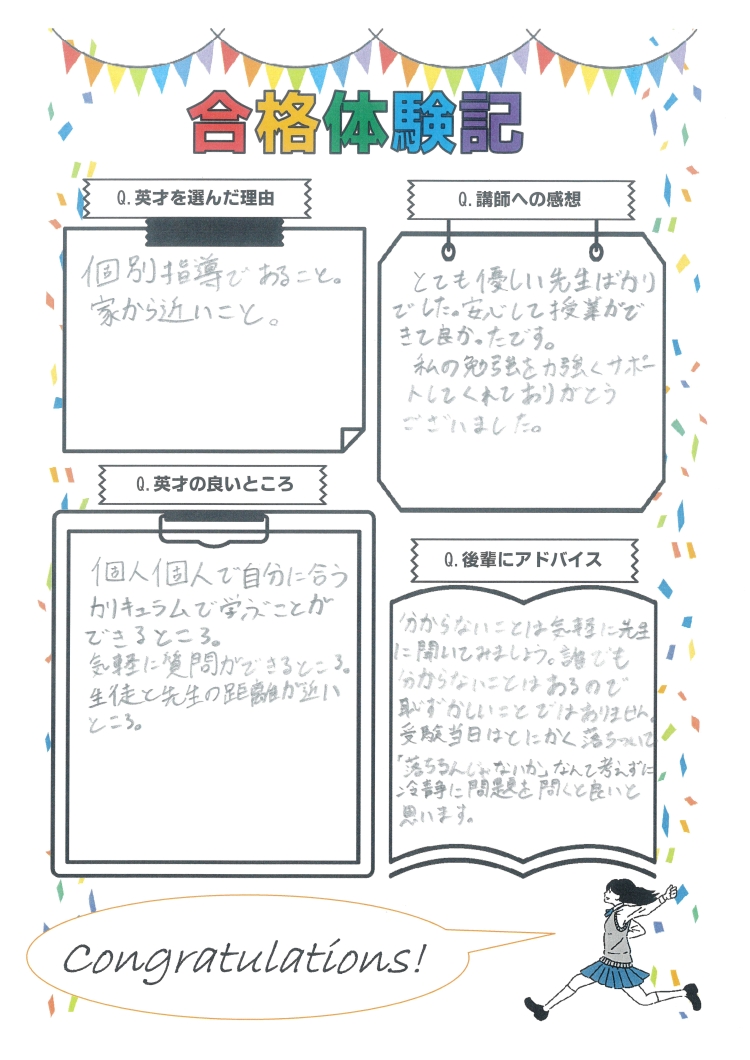 合格体験記
Q.英才を選んだ理由
個別指導であること。
家から近いこと。
Q.講師への感想
とても優しい先生ばかり
でした。安心して授業がで
きて良かったです。
私の勉強を力強くサポー
トしてくれてありがとう
ございました。
Q.英才の良いところ
個人個人で自分に合う
カリキュラムで学ぶことが
できるところ。
気軽に質問ができるところ。
生徒と先生の距離が近い
ところ。
Q.後輩にアドバイス
分からないことは気軽に先生
に聞いてみましょう。誰でも
分からないことはあるので
恥ずかしいことではありません。
受験当日はとにかく落ちついて
「落ちるんじゃないか」なんて考えずに
冷静に問題を問くと良いと
思います。
Congratulations!